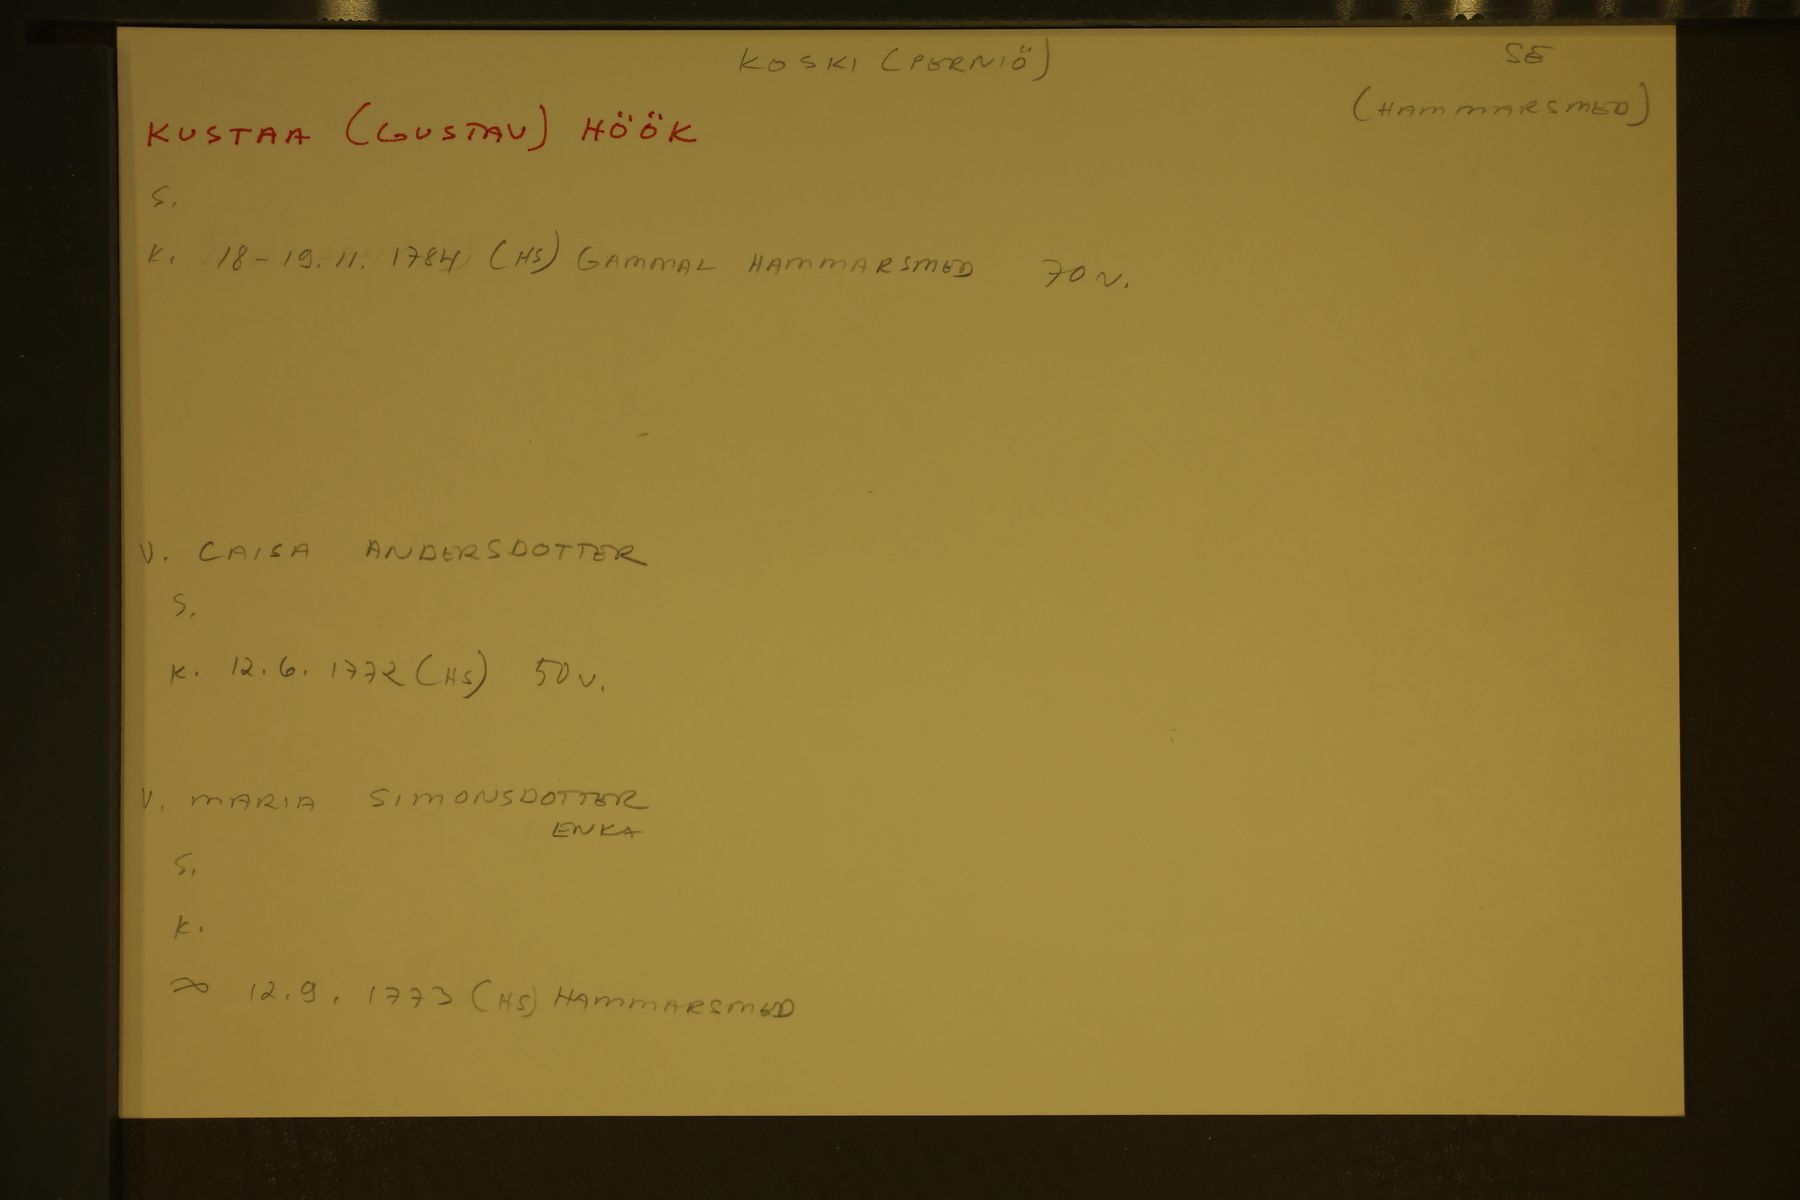 KOSKI (PERNIÖ)
SE
(HAMMARSMED)
KUSTAA (GUSTAV) HÖÖK
S.
K. 18-19.11. 1784 (HS) GAMMAL HAMMARSMED 70 v.
V. CAISA ANDERSDOTTER
S.
K. 12.6. 1772 (HS) 50 v.
V. MARIA SIMONSDOTTER
ENKA
S.
K.
∞ 12.9. 1773 (HS) HAMMARSMED